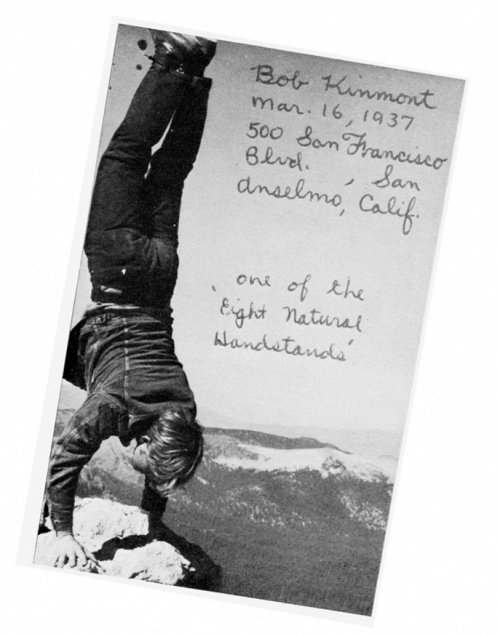 Bob Kinmont
Mar. 16, 1937
500 San Francisco
Blvd. , San
Anselmo, Calif.
one of the
'Eight Natural
Handstands'